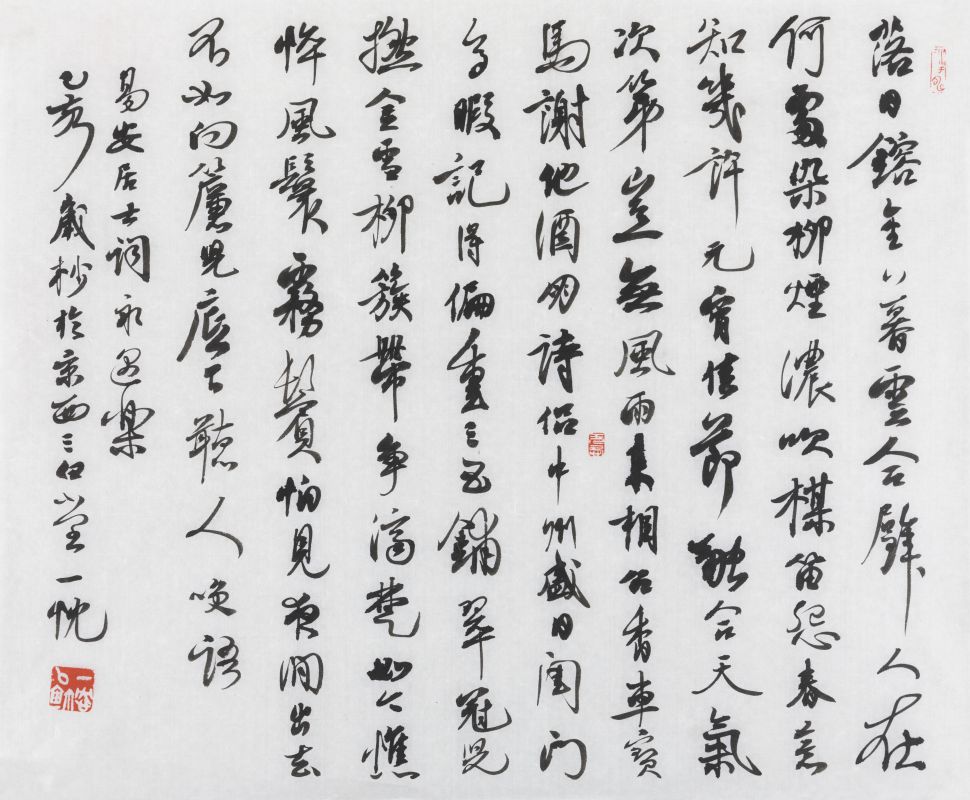 落日鎔金暮雲合璧人在
何處染柳煙濃吹楳笛怨春意
知幾許元宵佳節融合天氣
次第豈無風雨來相召香車寶
馬謝他酒朋詩侶中州盛日閨門
多暇記得偏重三五鋪翠冠兒
撚金雪柳簇帶争濟楚如今憔
悴風鬟霧鬢怕見夜間出去
不如向簾兒底下聽人咲語
易安居士詞永遇樂
己亥歲杪於京西三堂一忱